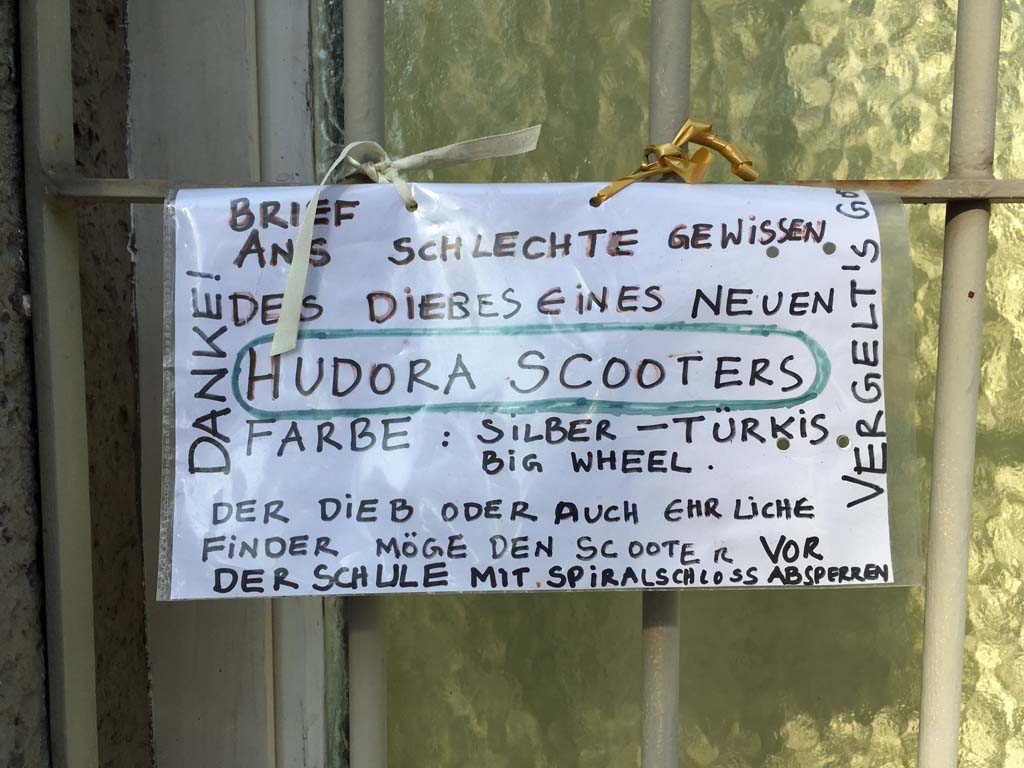 BRIEF
ANS SCHLECHTE GEWISSEN
DES DIEBES EINES NEUEN
HUDORA SCOOTERS
FARBE : SILBER - TÜRKIS
BIG WHEEL.
DER DIEB ODER AUCH EHRLICHE
FINDER MÖGE DEN SCOOTER VOR
DER SCHULE MIT SPIRALSCHLOSS ABSPERREN
DANKE!
VERGELT'S